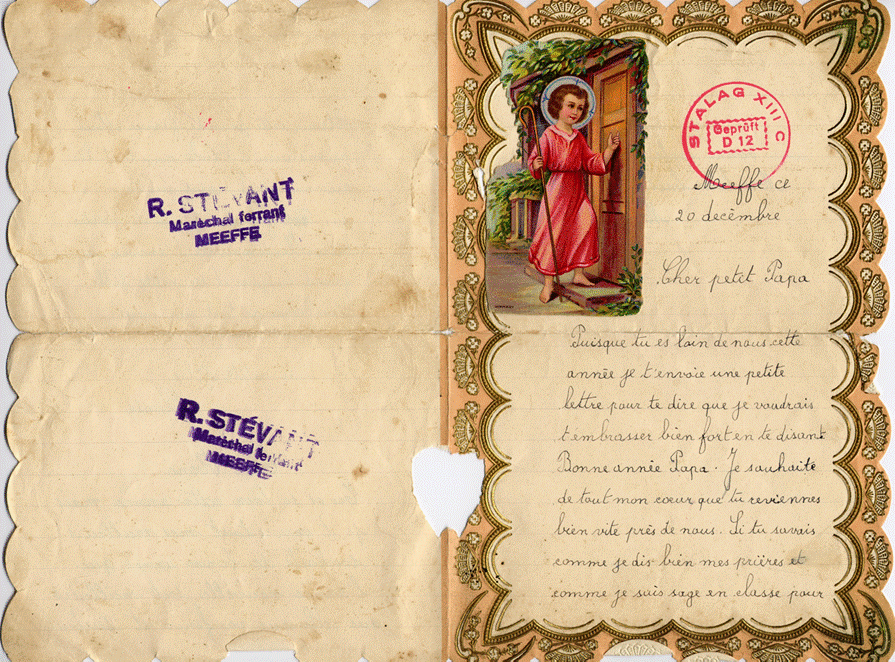 R. STÉVANT
Maréchal ferrant
MEEFFE
R. STÉVANT
Maréchal ferrant
MEEFFE
STALAG XIII C
Geprüft
D 12
Meeffe ce
20 decèmbre
Cher petit Papa
Puisque tu es loin de nous cette
année je t'envoie une petite
lettre pour te dire que je voudrais
t'embrasser bien fort en te disant
Bonne année Papa. Je souhaite
de tout mon cœur que tu reviennes
bien vite près de nous. Si tu savais
comme je dis bien mes prières et
comme je suis sage en classe pour